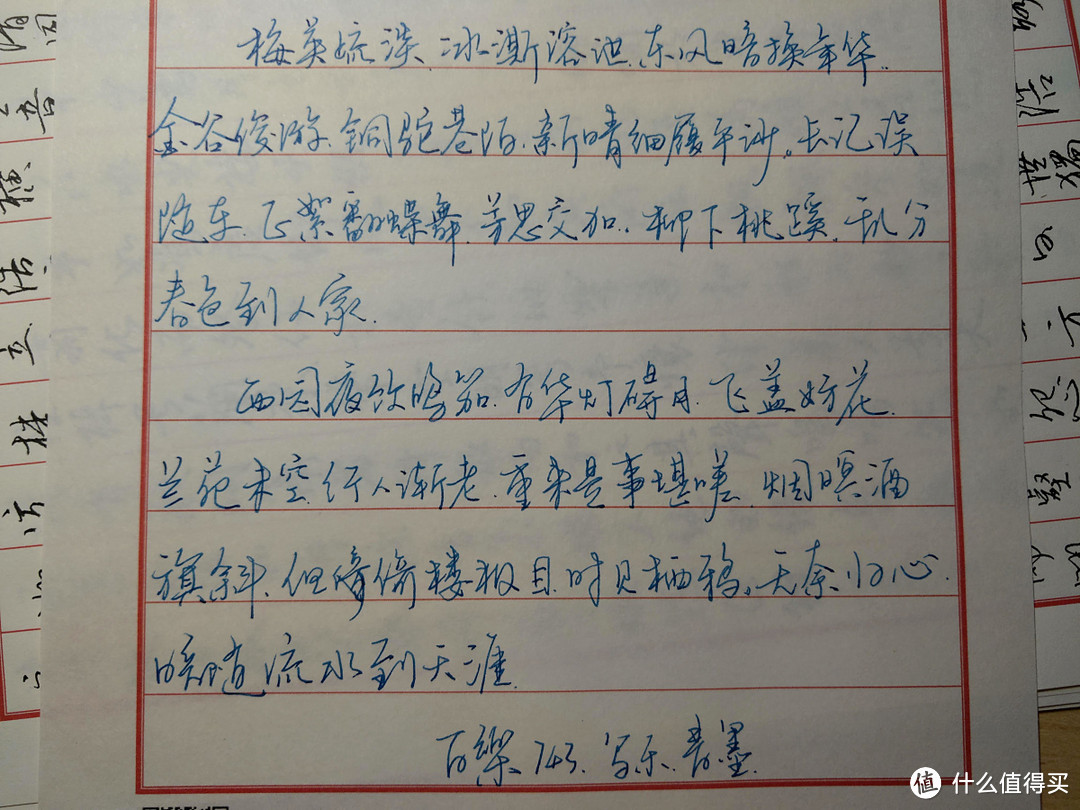 梅英疏淡,冰澌溶泄,东风暗换年华。
金谷俊游,铜驼巷陌,新晴细履平沙。长记误
随车,正絮翻蝶舞,芳思交加,柳下桃蹊,乱分
春色到人家。
西园夜饮鸣笳。有华灯碍月,飞盖妨花。
兰苑未空,行人渐老,重来是事堪嗟。烟暝酒
旗斜。但倚倚楼极目,时见栖鸦。无奈归心,
暗随流水到天涯。
百樂 743. 写乐.青墨.
值 什么值得买